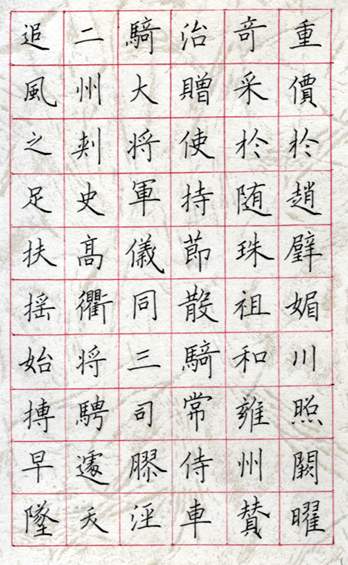 重價於趙璧媚川照闕曜
奇采於随珠祖和雍州賛
治贈使持節散騎常侍車
騎大将軍儀同三司膠涇
二州刾史高衢将騁遽夭
追風之足扶摇始搏早墜